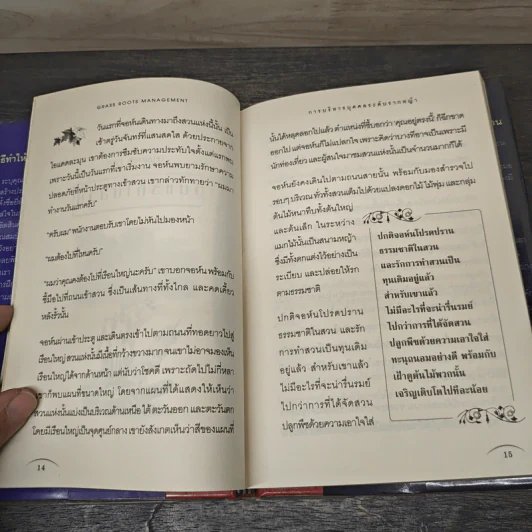 GRASS ROOTS MANAGEMENT
วันแรกที่จอห์นเดินทางมาถึงสวนแห่งนี้นั้น เป็น
เช้าตรู่วันจันทร์ที่แสนสดใส ด้วยประกายจาก
ไอแดดละมุน เขาต้องการซึมซับความประทับใจตั้งแต่แรกพบ
เพราะวันนี้เป็นวันแรกที่เขาเริ่มงาน จอห์นพบยามรักษาความ
ปลอดภัยที่หน้าประตูทางเข้าสวน เขากล่าวทักทายว่า "ผมมา
ทำงานวันแรกครับ"
"ครับผม" พนักงานตอบรับเขาโดยไม่หันไปมองหน้า
"ผมต้องไปที่ไหนครับ"
"ผมว่าคุณคงต้องไปที่เรือนใหญ่นะครับ" เขาบอกจอห์น พร้อมกับ
ชี้มือไปที่ถนนเข้าสวน ซึ่งเป็นเส้นทางที่ทั้งไกล และคดเคี้ยว
หลังรั้วนั้น
จอห์นผ่านเข้าประตู และเดินตรงเข้าไปตามถนนที่ทอดยาวไปสู่
เรือนใหญ่ สวนแห่งนั้นมีเนื้อที่กว้างขวางมาก จนเขาไม่อาจมองเห็น
เรือนใหญ่ได้จากด้านหน้า แต่นับว่าโชคดี เพราะถัดไปไม่กี่หลา
เขาก็พบแผนที่ขนาดใหญ่ โดยจากแผนที่ได้แสดงให้เห็นว่า
สวนแห่งนั้นแบ่งเป็นบริเวณด้านเหนือ ใต้ ตะวันออก และตะวันตก
โดยมีเรือนใหญ่เป็นจุดศูนย์กลาง เขายังสังเกตเห็นว่าสีของแผนที่
14
การบริหารบุคคลระดับรากหญ้า
นั้นได้หลุดลอกไปแล้ว ตำแหน่งที่ชี้บอกว่า"คุณอยู่ตรงนี้" ก็ฉีกขาด
ออกไป แต่จอห์นก็ไม่แปลกใจ เพราะคิดว่าบางทีอาจเป็นเพราะมี
นักท่องเที่ยว และผู้สนใจมาชมสวนแห่งนั้นเป็นจำนวนมากก็ได้
จอห์นยังคงเดินไปตามถนนสายนั้น พร้อมกับมองสำรวจไป
รอบๆ บริเวณ ทั่วทั้งสวนเต็มไปด้วยแปลงดอกไม้ ไม้พุ่ม และกลุ่ม
ต้นไม้หนาทึบทั้งต้นใหญ่
และต้นเล็ก ในระหว่าง
แมกไม้นั้นเป็นสนามหญ้า
ซึ่งมีทั้งตกแต่งไว้อย่างเป็น
ระเบียบ และปล่อยให้รก
ตามธรรมชาติ
ปกติจอห์นโปรดปราน
ธรรมชาติในสวน และรัก
การทำสวนเป็นทุนเดิม
อยู่แล้ว สำหรับเขาแล้ว
ไม่มีอะไรที่จะน่ารื่นรมย์
ไปกว่าการที่ได้จัดสวน
ปลูกพืชด้วยความเอาใจใส่
ปกติจอห์นโปรดปราน
ธรรมชาติในสวน
และรักการทำสวนเป็น
ทุนเดิมอยู่แล้ว
สำหรับเขาแล้ว
ไม่มีอะไรที่จะน่ารื่นรมย์
ไปกว่าการที่ได้จัดสวน
ปลูกพืชด้วยความเอาใจใส่
ทะนุถนอมอย่างดี พร้อมกับ
เฝ้าดูต้นไม้พวกนั้น
เจริญเติบโตไปทีละน้อย
15